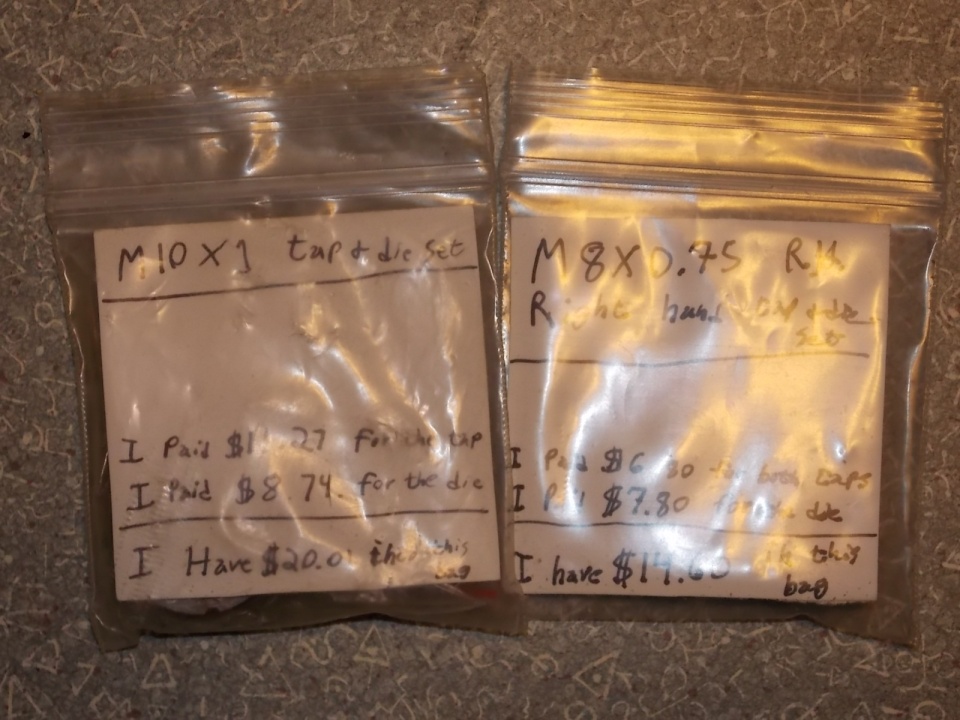 M10 X 1 tap & die set
I Paid $11.27 for the tap
I Paid $8.74 for the die
I Have $20.01 in this
bag
M8X0.75 RH
Right hand tap & die
set
I Paid $6.80 for both taps
I Paid $7.80 for the die
I have $14.60 in this
bag